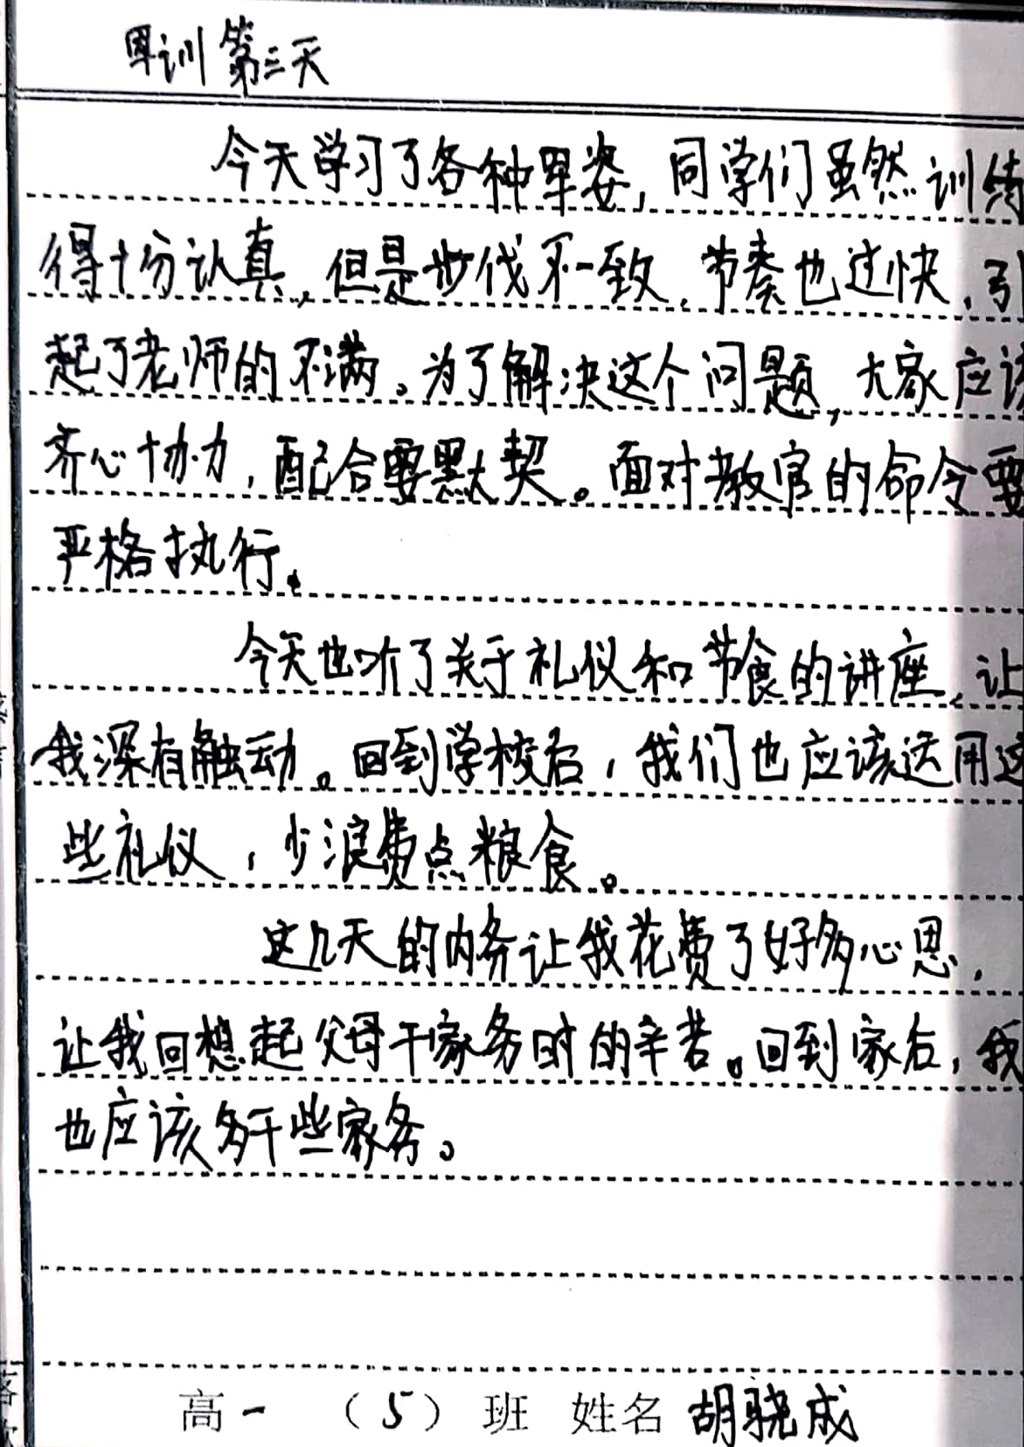 军训第三天
今天学习了各种军姿，同学们虽然训练
得十分认真，但是步伐不一致，节奏也过快，引
起了老师的不满。为了解决这个问题，大家应该
齐心协力，配合要默契。面对教官的命令要
严格执行。
今天也听了关于礼仪和节食的讲座，让
我深有触动。回到学校后，我们也应该运用这
些礼仪，少浪费点粮食。
这几天的内务让我花费了好多心思，
让我回想起父母干家务时的辛苦。回到家后，我
也应该多干些家务。
高一（5）班 姓名 胡骁成